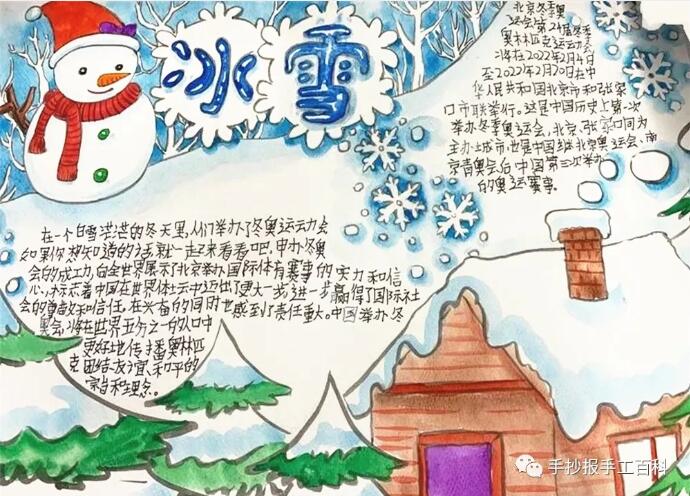 冰雪
北京冬季奥
运会第24届冬季
奥林匹克运动会
将在2022年2月4日
至2022年2月20日在中
华人民共和国北京市和张家
口市联举行。这是中国历史上第一次
举办冬季奥运会,北京、张家口同为
主办土城市,也是中国继北京奥运会、南
京青奥会后中国第三次举办
的奥运赛事。
在一个白雪茫茫的冬天里,人们举办了冬奥运动会
如果你想知道的话就一起来看看吧,申办冬奥
会的成功,向全世界展示了北京举办国际体育赛事的实力和信
心,标志着中国在世界体坛中迈出了更大一步,进一步赢得了国际社
会的尊敬和信任,在兴奋的同时也感到了责任重大。中国举办冬
奥会,将在世界五分之一的人口中
更好地传播奥林匹
克团结、友谊、和平的
宗旨和理念。
手抄报手工百科